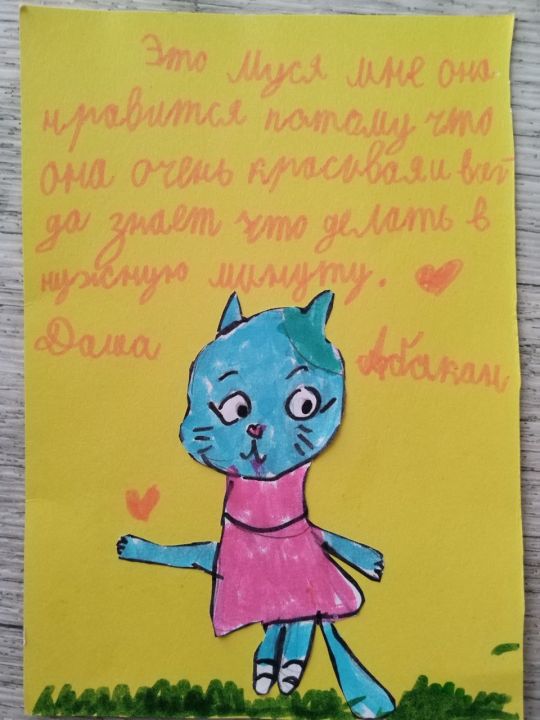 Это Муся мне она
нравится потому что
она очень красивая и всег
да знает что делать в
нужную минуту.
Даша Абакан